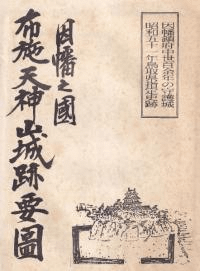 因幡鎮府中世百余年の守護城
昭和五十一年鳥取県指定史跡
因幡之國
布施天神山城跡要圖